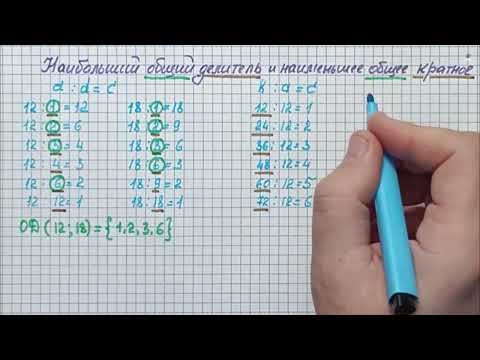 Наибольший общий делитель и наименьшее общее кратное
d : d = c K : d = c
12 : 1 = 12 18 : 1 = 18 12 : 12 = 1
12 : 2 = 6 18 : 2 = 9 24 : 12 = 2
12 : 3 = 4 18 : 3 = 6 36 : 12 = 3
12 : 4 = 3 18 : 6 = 3 48 : 12 = 4
12 : 6 = 2 18 : 9 = 2 60 : 12 = 5
12 : 12 = 1 18 : 18 = 1 72 : 12 = 6
ОД (12; 18) = {1, 2, 3, 6}